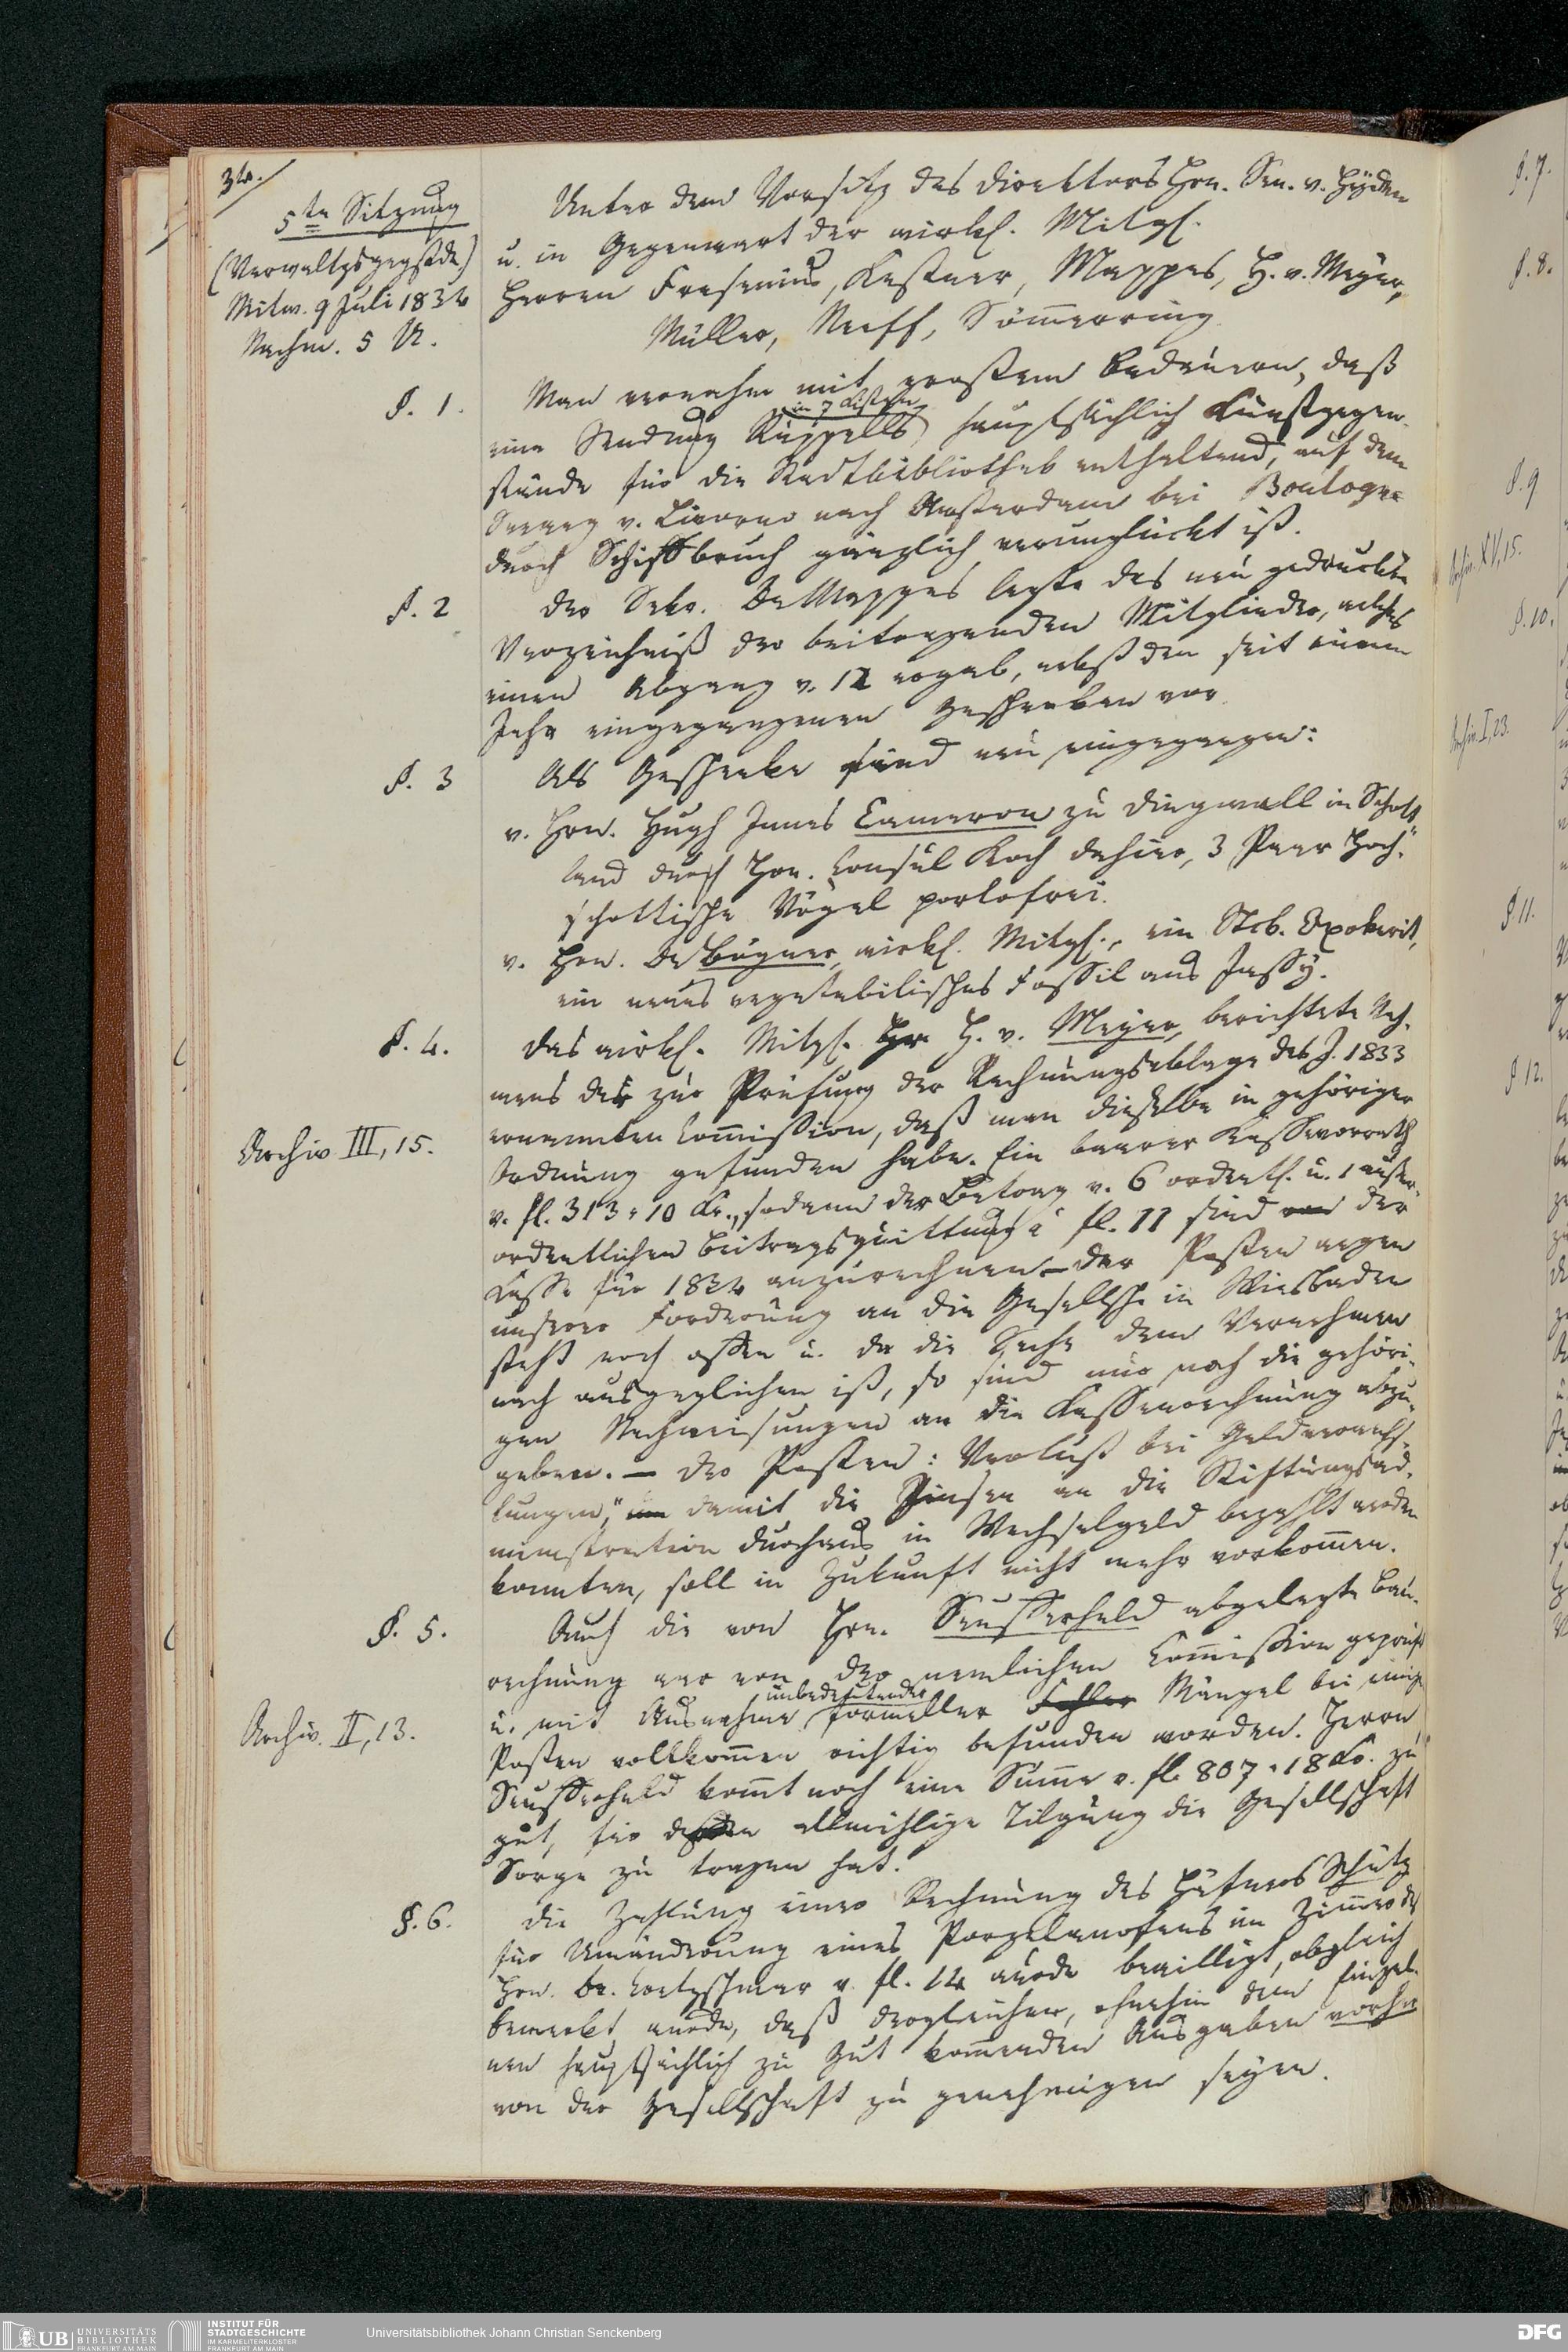 34.
5te Sitzung
(Verwaltgsgegstde.)
Mitw. 9 Juli 1834
Nachm. 5 U.
Unter dem Vorsitz des Direktors Hrn. Sen. v. Heyden
u. in Gegenwart der wirkl. Mitgl.
Herren Fresenius, Kestner, Mappes, H. v. Meyer,
Müller, Neeff, Sömmerring.
§. 1.
Man vernahm mit großem Bedauern, daß
in 7 Kisten
eine Sendung Rüppells hauptsächlich Kunstgegen-
stände für die Stadtbibliothek enthaltend, auf dem
Seeweg v. Livorno nach Amsterdam bei Boulogne
durch Schiffbruch gänzlich verunglückt ist.
§. 2
Der Sekr. Dr Mappes legte das neu gedruckte
Verzeichniß der beitragenden Mitglieder, welches
einen Abgang v. 12 ergab, nebst den seit einem
Jahr eingegangenen Geschenken vor.
§. 3
Als Geschenke sind neu eingegangen:
v. Hrn. Hugh Innes Cameron zu Dingwall in Schott-
land durch Hrn. Consul Koch dahier, 3 Paar Hoch-
schottische Vögel portofrei.
v. Hrn. Dr Bögner, wirkl. Mitgl., ein Stck. Ozokerit,
ein neues vegetabilisches Fossil aus Jassy.
§. 4.
Das wirkl. Mitgl. Hr H. v. Meyer, berichtete Na-
mens der zur Prüfung der Rechnungsablage des J. 1833
ernannten Commission, daß man dieselbe in gehöriger
Archiv III, 15.
Ordnung gefunden habe. Ein baarer Kassevorrath
v. fl. 313 " 10 Kr., sodann der Betrag v. 6 ordentl. u. 1 außer-
ordentlichen Beitragsquittung à fl. 11 sind von der
Kasse für 1834 anzurechnen – Der Posten wegen
unserer Forderung an die Gesellsch. in Wiesbaden
steht noch offen u. da die Sache dem Vernehmen
nach ausgeglichen ist, so sind nur noch die gehöri-
gen Nachweisungen an die Kassenrechnung abzu-
geben. – Der Posten: Verlust bei Geldverwechs-
lungen," damit die Zinsen an die Stiftungsad-
ministration durchaus in Wechselgeld bezahlt werden
konnten, soll in Zukunft nicht mehr vorkommen.
§. 5.
Auch die von Hrn. Seufferheld abgelegte Bau-
rechnung war von der nemlichen Commission geprüft
unbedeutender
u. mit Ausnahme formeller Fehler Mängel bei einigen
Archiv. II, 13.
Posten vollkommen richtig befunden worden. Herrn
Seufferheld kommt noch eine Summe v. fl. 807 " 18 Kr. zu
gut, für deren allmählige Tilgung die Gesellschaft
Sorge zu tragen hat.
§. 6.
Die Zahlung einer Rechnung des Häfners Schütz
für Umänderung eines Porzelanofens im Zimmer des
Hrn. Dr. Cretzschmar v. fl. 14 wurde bewilligt, obgleich
bemerkt wurde, daß dergleichen, ohnehin dem Einzel-
nen hauptsächlich zu gut kommenden Ausgaben vorher
von der Gesellschaft zu genehmigen seyen.
§. 7.
§. 8.
§. 9
Archiv. XV, 15.
§. 10.
Archiv. I, 23.
§ 11.
§ 12.
UB UNIVERSITÄTS
BIBLIOTHEK
FRANKFURT AM MAIN
INSTITUT FÜR
STADTGESCHICHTE
IM KARMELITERKLOSTER
FRANKFURT AM MAIN
Universitätsbibliothek Johann Christian Senckenberg
DFG